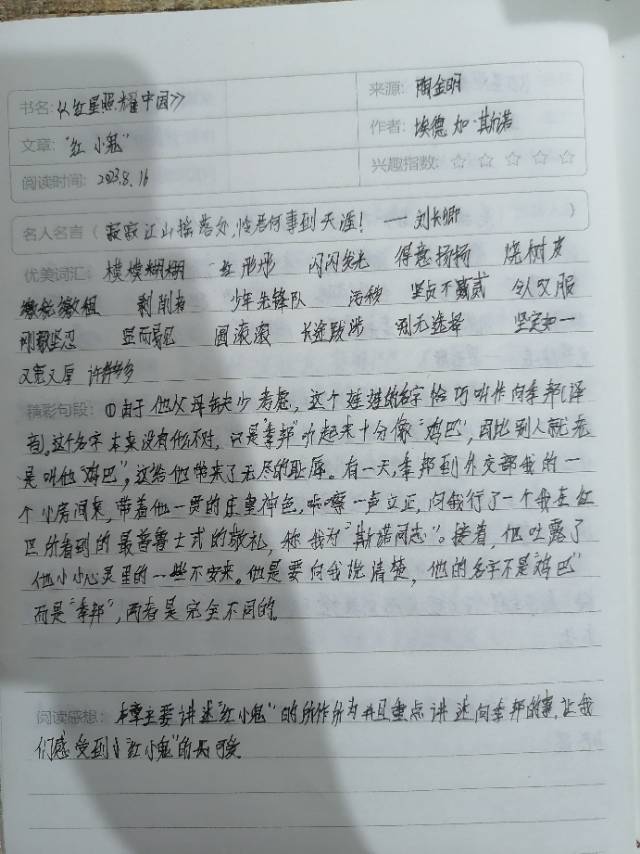 书名:《红星照耀中国》 来源: 陶金明
文章: "红小鬼" 作者: 埃德加·斯诺
阅读时间: 2023.8.16 兴趣指数: ☆ ☆ ☆ ☆ ☆
名人名言 ( 寂寂江山摇落处,怜君何事到天涯! — 刘长卿 )
优美词汇: 模模糊糊 红彤彤 闪闪发光 得意扬扬 烧树皮
剥削者 少年先锋队 污秽 坚贞不贰 令人叹服
刚毅坚忍 显而易见 圆滚滚 长途跋涉 别无选择 坚定如一
又宽又厚 许许多多
精彩句段: ①由于他父母缺少考虑,这个娃娃的名字恰巧叫作向季邦(译
音)。这个名字本来没有什么不对,只是"季邦"听起来十分像"鸡巴",因此别人就老
是叫他"鸡巴",这给他带来了无尽的耻辱。有一天,季邦到外交部我的一
个小房间来,带着他一贯的庄重神色,咔嚓一声立正,向我行了一个我在红
区所看到的最普鲁士式的敬礼,称我为"斯诺同志"。接着,他吐露了
他小小心灵里的一些不安来。他是要向我说清楚,他的名字不是"鸡巴"
而是"季邦",两者是完全不同的。
阅读感想: 本章主要讲述"红小鬼"的所作所为并且重点讲述向季邦的事,让我
们感受到了"红小鬼"的可爱。